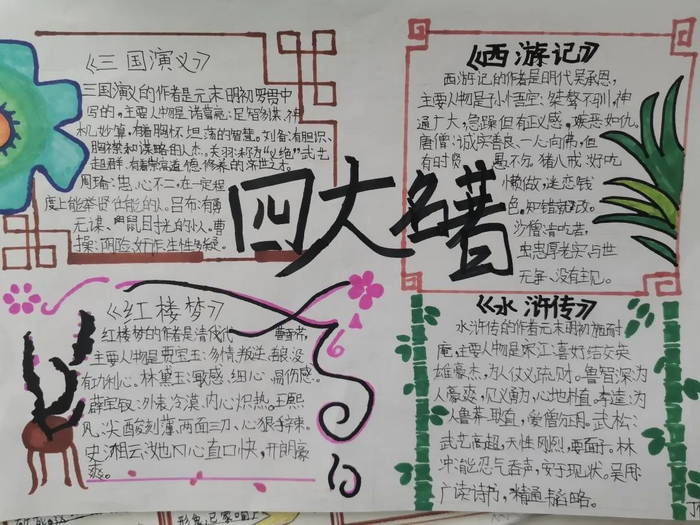 《三国演义》
三国演义的作者是元末明初罗贯中
写的,主要人物是诸葛亮:足智多谋,神
机妙算,有着胸怀坦荡的智慧。刘备:有胆识、
胸襟和谋略的人杰。关羽:称为"义绝"武艺
超群,有着崇高道德修养的济世之才。
周瑜:忠心不二,在一定程
度上能举贤任能的人。吕布:有勇
无谋、鼠目寸光的小人。曹
操:阴险、奸诈,生性多疑。
四大名著
《西游记》
西游记的作者是明代吴承恩,
主要人物是孙悟空:桀骜不驯,神
通广大,急躁但有正义感,嫉恶如仇。
唐僧:诚实善良、一心向佛,但
有时贤 愚不分。猪八戒:好吃
懒做,迷恋钱
色。知错就改。
沙僧:肯吃苦,
虫忠厚老实,与世
无争、没有主见。
《红楼梦》
红楼梦的作者是清代代 曹雪芹,
主要人物是贾宝玉:多情,叛逆,但没
有功利心。林黛玉:敏感、细心,易伤感。
薛宝钗:外表冷漠,内心炽热。王熙
凤:尖酸刻薄,两面三刀、心狠手辣。
史湘云:她心直口快,开朗豪
爽。
《水浒传》
水浒传的作者元末明初施耐
庵,主要人物是宋江:喜好结交英
雄豪杰,为人仗义疏财。鲁智深:为
人豪爽,见义勇为,心地朴直。李逵:为
人鲁莽、耿直,爱憎分明。武松:
武艺高超,天性刚烈,要面子。林
冲:能忍气吞声,安于现状。吴用:
广读诗书,精通韬略。